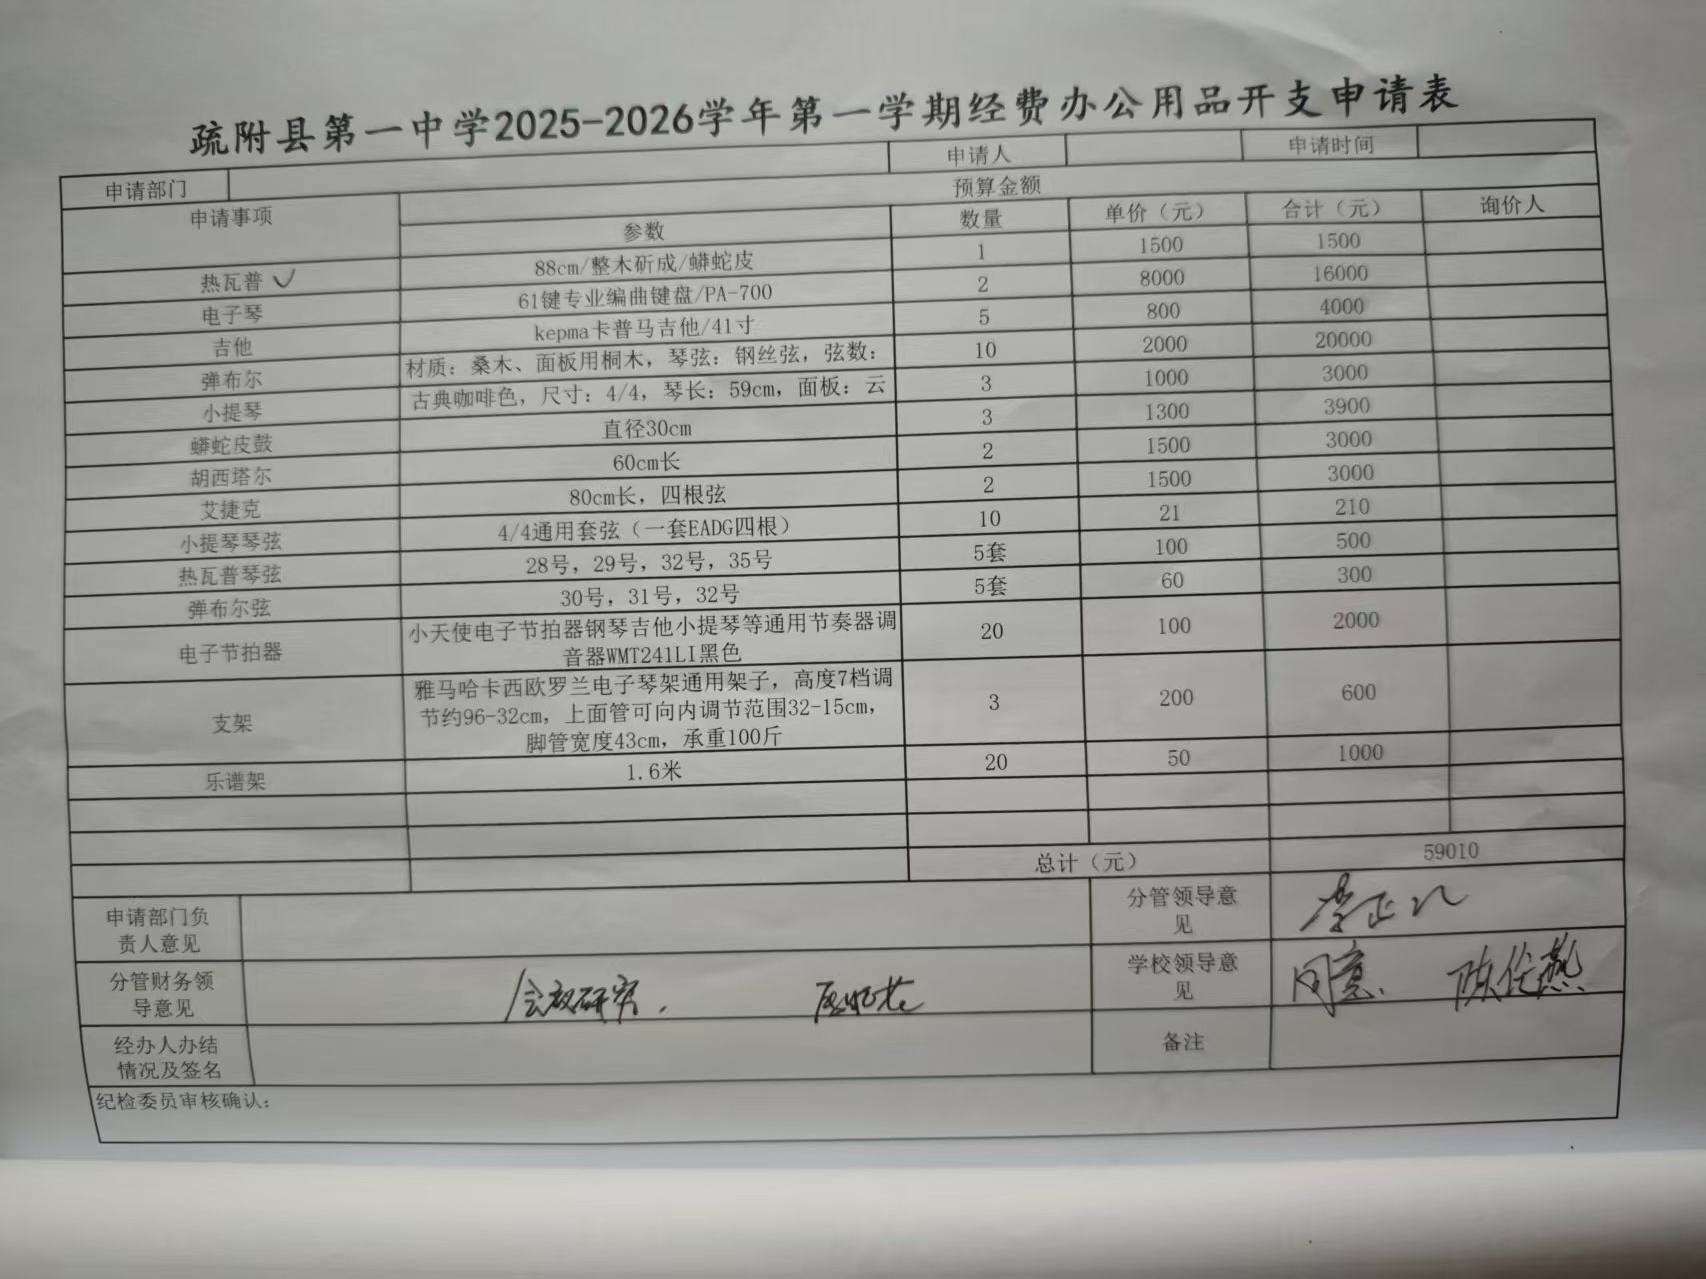 疏附县第一中学2025-2026学年第一学期经费办公用品开支申请表
申请部门 申请人 申请时间
申请事项 预算金额
参数 数量 单价（元） 合计（元） 询价人
热瓦普 ✓ 88cm/整木斫成/蟒蛇皮 1 1500 1500
电子琴 61键专业编曲键盘/PA-700 2 8000 16000
吉他 kepma卡普马吉他/41寸 5 800 4000
弹布尔 材质：桑木、面板用桐木，琴弦：钢丝弦，弦数： 10 2000 20000
小提琴 古典咖啡色，尺寸：4/4，琴长：59cm，面板：云 3 1000 3000
蟒蛇皮鼓 直径30cm 3 1300 3900
胡西塔尔 60cm长 2 1500 3000
艾捷克 80cm长，四根弦 2 1500 3000
小提琴琴弦 4/4通用套弦（一套EADG四根） 10 21 210
热瓦普琴弦 28号，29号，32号，35号 5套 100 500
弹布尔弦 30号，31号，32号 5套 60 300
电子节拍器 小天使电子节拍器钢琴吉他小提琴等通用节奏器调 20 100 2000
音器WMT241LI黑色
支架 雅马哈卡西欧罗兰电子琴架通用架子，高度7档调 3 200 600
节约96-32cm，上面管可向内调节范围32-15cm，
脚管宽度43cm，承重100斤
乐谱架 1.6米 20 50 1000
总计（元） 59010
申请部门负 分管领导意
责人意见 见
分管财务领 会议研究. 学校领导意 同意.
导意见 见
经办人办结 备注
情况及签名
纪检委员审核确认：